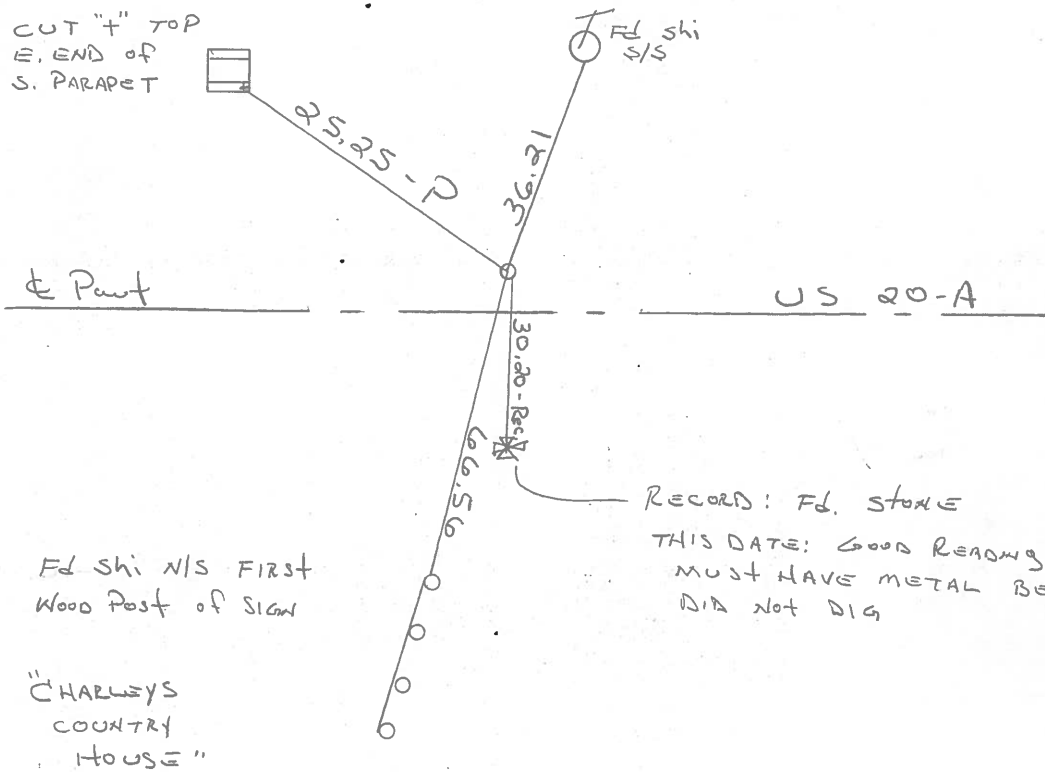 CUT "+" TOP
E. END of
S. PARAPET
Fd shi
S/S
25.25 - P
36.21
℄ Pavt
US 20-A
30.20 - Rec
66.56
RECORD: Fd. STONE
THIS DATE: GOOD READING
MUST HAVE METAL BE
DID NOT DIG
Fd shi N/S FIRST
WOOD POST of SIGN
"CHARLEYS
COUNTRY
HOUSE"